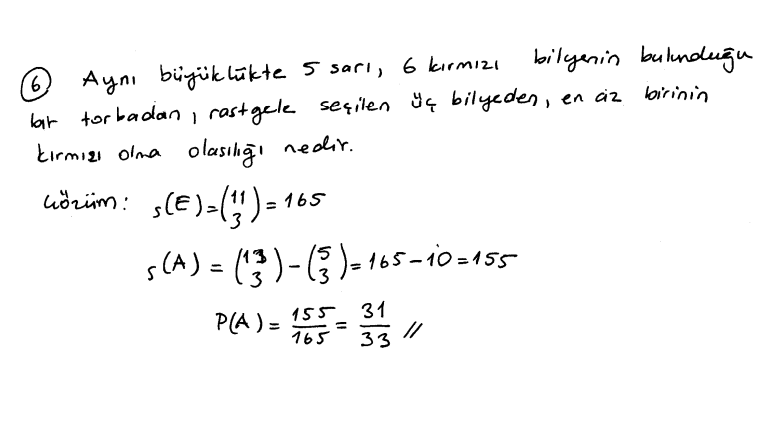 6 Aynı büyüklükte 5 sarı, 6 kırmızı bilyenin bulunduğu
bir torbadan, rastgele seçilen üç bilyeden, en az birinin
kırmızı olma olasılığı nedir.
Çözüm: s(E)=(11 3)=165
s(A) = (11 3)-(5 3)=165-10=155
P(A)= 155/165 = 31/33 //